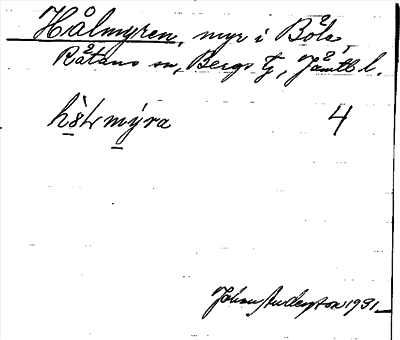 Hålmyren, myr i Böle,
Rätans sn, Bergs tg, Jämtl l.
mýra 4
Johan Anderson 1931